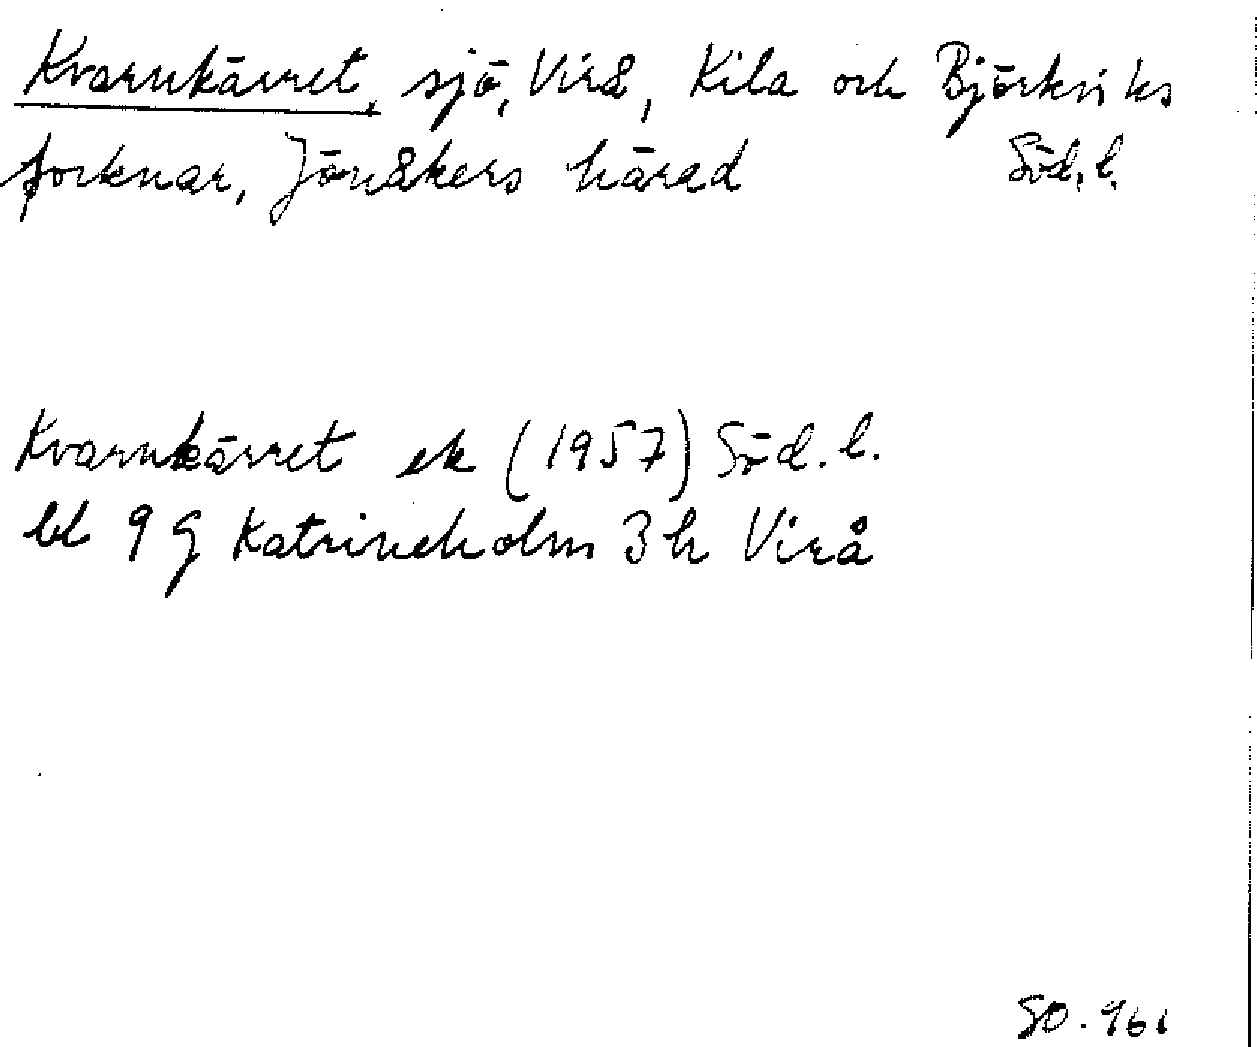 Kvarnkärret, sjö, Virå, Kila och Björkviks
socknar, Jönåkers härad Söd. l.
Kvarnkärret ek (1957) Söd. l.
bl 9 G Katrineholm 3 h Virå
SO. 961